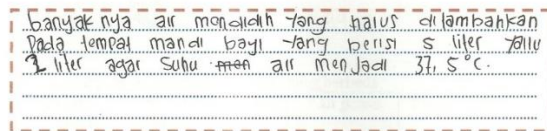 banyak nya air mendidih yang harus ditambahkan
Pada tempat mandi bayi yang berisi 5 liter yaitu
2 liter agar suhu men air menjadi 37,5°C.